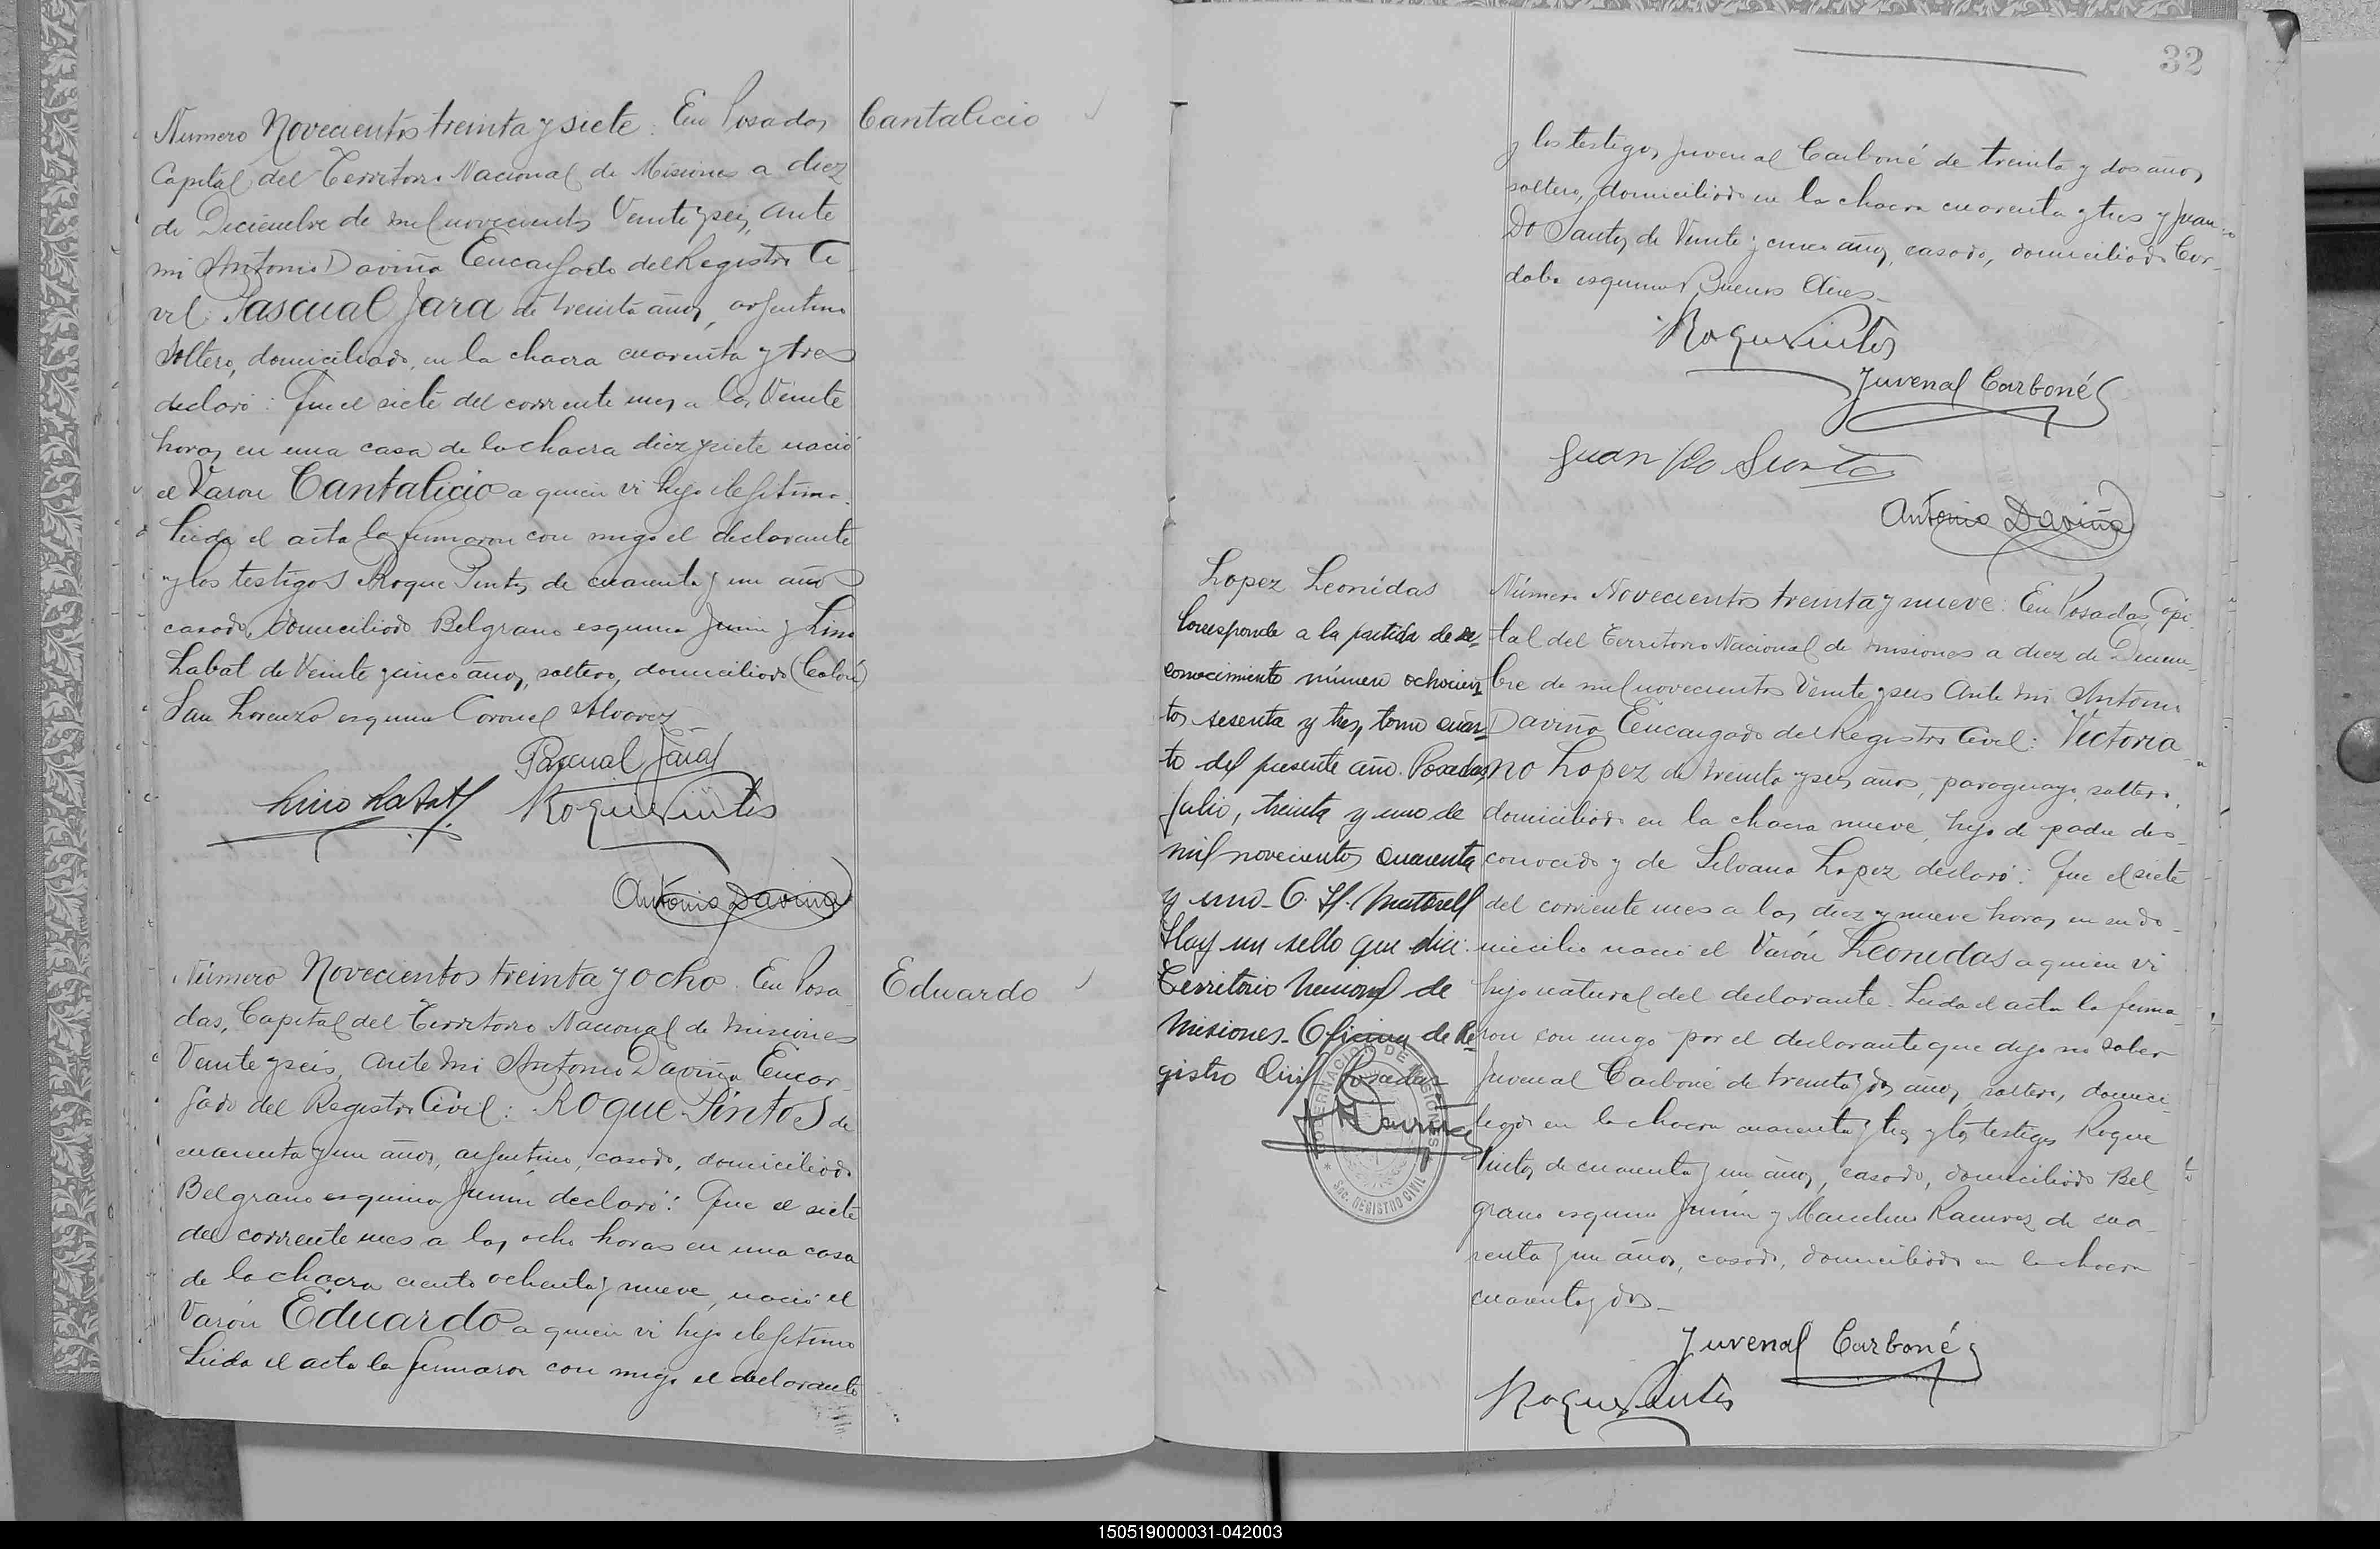 Numero Novecientos treinta y siete: En Posadas
Cantalicio
Capital del Territorio Nacional de Misiones a diez
de Diciembre de mil novecientos Veinte y seis, ante
mi Antonio Daviña Encargado del Registro Ci
vil Pascual Jara de treinta años, argentino
Soltero, domiciliado, en la chacra cuarenta y tres
declaró: Que el siete del corriente mes a las Veinte
horas en una casa de la chacra diez y siete nació
el Varon Cantalicio a quien vi hijo ilegítimo.
Leida el acta la firmaron con migo el declarante
y los testigos Roque Pintos de cuarenta y un años
casado, domiciliado Belgrano esquina Junin y Lino
Labat de Veinte y cinco años, soltero, domiciliado (Colón)
San Lorenzo esquina Coronel Alvarez
Pascual Jara
Lino Labat
Roque Pintos
Antonio Daviña
Número Novecientos treinta y ocho. En Posa
Eduardo
das, Capital del Territorio Nacional de Misiones
Veinte y seis, ante mi Antonio Daviña Encar
gado del Registro Civil: Roque Pintos de
cuarenta y un años, argentino, casado, domiciliado
Belgrano esquina Junin declaró: Que el siete
del corriente mes a las ocho horas en una casa
de la chacra ciento ochenta y nueve, nació el
Varón Eduardo a quien vi hijo ilegítimo
Leida el acta la firmaron con migo el declarante
32
y los testigos Juvenal Carboné de treinta y dos años
soltero, domiciliado en la chacra cuarenta y tres y Juan
Do Santos de Veinte y cinco años, casado, domiciliado Cor-
doba esquina Buenos Aires-
Roque Pintos
Juvenal Carboné
Juan Do Santo
Antonio Daviña
Lopez Leonidas
Corresponde a la partida de re-
conocimiento número ochocien
tos sesenta y tres, tomo cuar-
to del presente año. Posadas
julio, treinta y uno de
mil novecientos cuarenta
y uno- C. H.
Hay un sello que dice:
Territorio Nacional de
Misiones- Oficina de Re-
gistro Civil Posadas
GOBERNACION DE MISIONES
Sec. REGISTRO CIVIL
Número Novecientos treinta y nueve: En Posadas Capi
tal del Territorio Nacional de Misiones a diez de Diciem-
bre de mil novecientos Veinte y seis Ante mi Antonio
Daviña Encargado del Registro Civil: Victoria
no Lopez de treinta y seis años, paraguayo, soltero,
domiciliado en la chacra nueve, hijo de padre des-
conocido y de Silvana Lopez declaró: Que el siete
del corriente mes a las diez y nueve horas en su do-
micilio nació el Varón Leonidas a quien vi
hijo natural del declarante. Leida el acta la firma-
ron con migo por el declarante que dijo no saber
Juvenal Carboné de treinta y dos años, soltero, domici-
liado en la chacra cuarenta y tres y los testigos Roque
Pintos de cuarenta y un años, casado, domiciliado Bel-
grano esquina Junin y Marcelino Ramirez de cua-
renta y un años, casado, domiciliado en la chacra
cuarenta y dos-
Juvenal Carboné
Roque Pintos
150519000031-042003